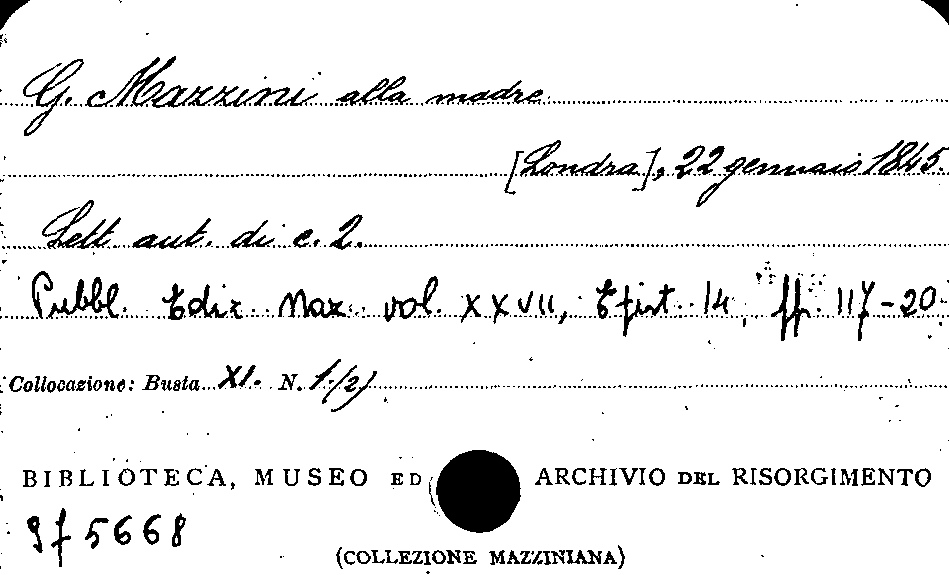 G. Mazzini alla madre
[Londra], 22 gennaio 1845.
Lett. aut. di c. 2.
Pubbl. Ediz. Naz. vol. XXVII, Epist. 14, pp. 117-20
Collocazione: Busta XI. N. 1/2)
BIBLIOTECA, MUSEO ED ARCHIVIO DEL RISORGIMENTO
5668
(COLLEZIONE MAZZINIANA)